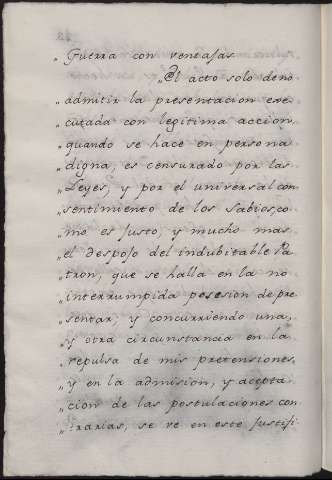 „ Guerra con ventajas
„ El acto solo de no
„ admitir la presentacion exe-
„ cutada con legitima accion,
„ quando se hace en persona
„ digna, es censurado por las
„ Leyes, y por el universal con
„ sentimiento de los Sabios, co-
„ mo es justo, y mucho mas
„ el despojo del indubitable Pa-
„ tron, que se halla en la no
„ interrumpida posesion de pre-
„ sentar, y concurriendo una,
„ y otra circunstancia en la
„ repulsa de mis pretensiones,
„ y en la admision, y acepta-
„ cion de las postulaciones con-
„ trarias, se ve en este justifi-